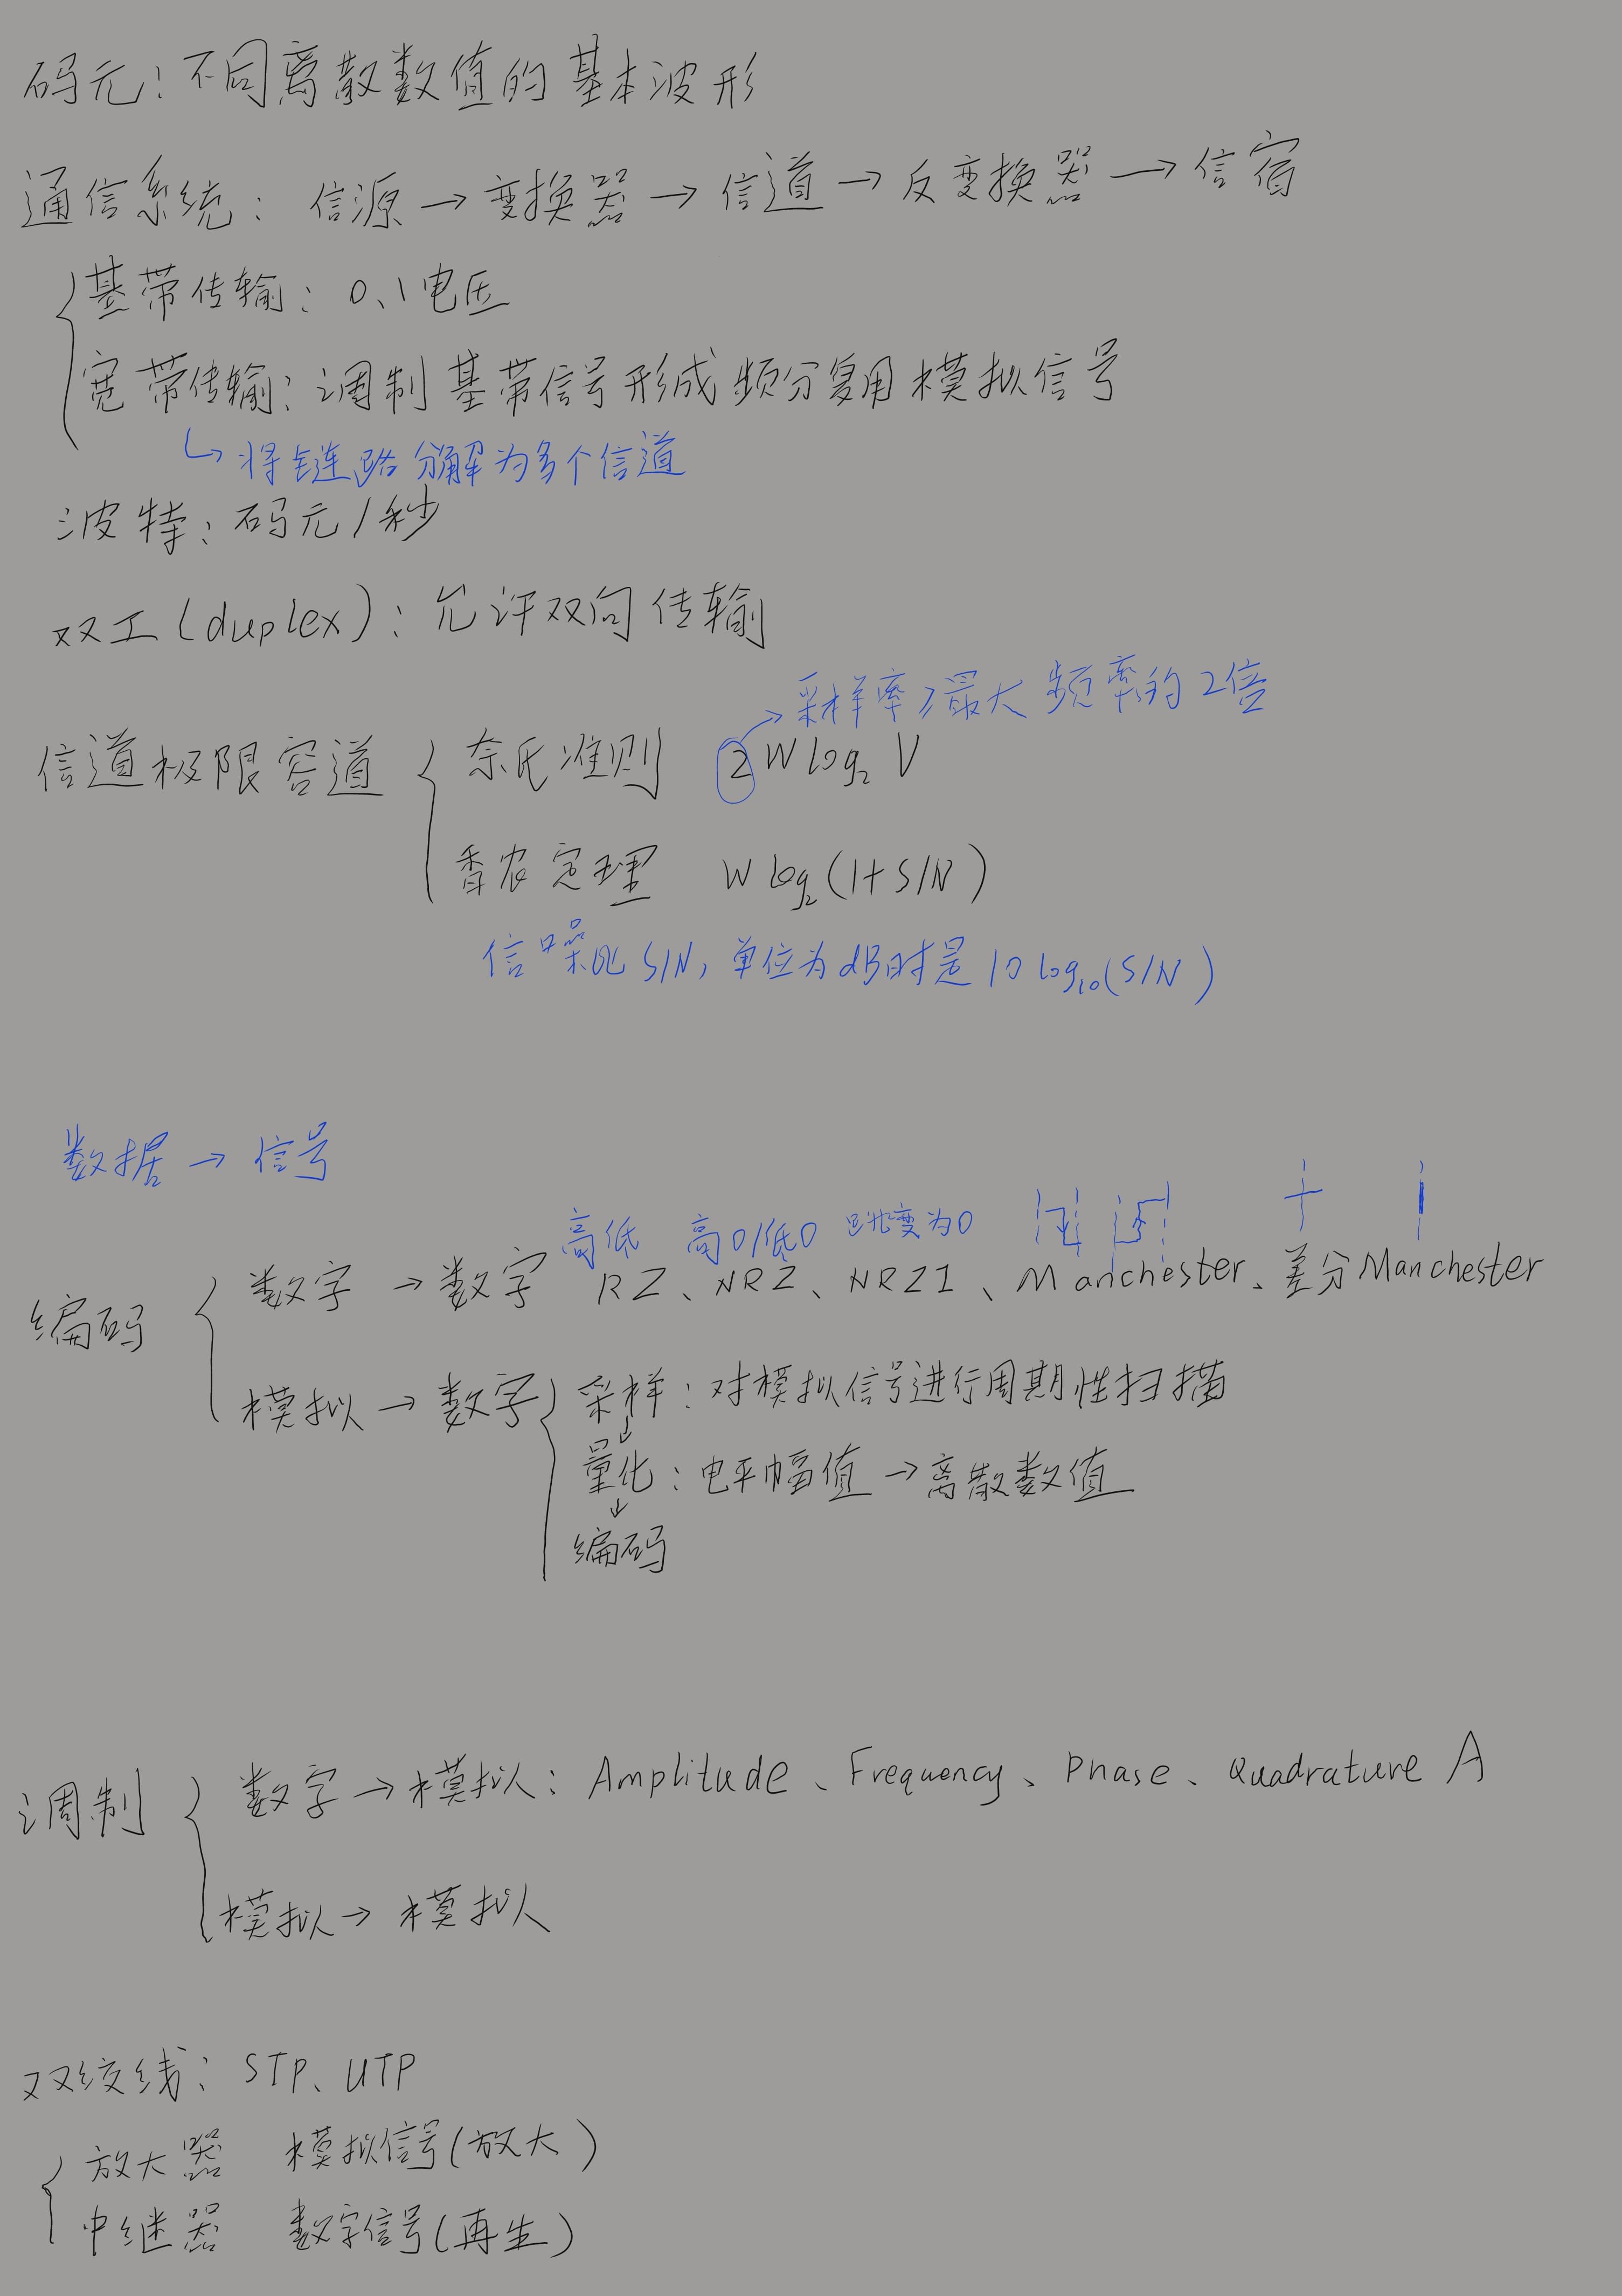 码元：不同离散数值的基本波形
通信系统：信源→变换器→信道→反变换器→信宿
基带传输：0、1电压
宽带传输：调制基带信号形成频分复用模拟信号
↳将链路分解为多个信道
波特：码元/秒
双工(duplex)：允许双向传输
→采样率≥最大频率的2倍
信道极限容道 { 奈氏准则 2Wlog₂V
香农定理 Wlog₂(1+S/N)
信噪比S/N，单位为dB时是10log₁₀(S/N)
数据→信号
高低 高0/低0 跳变为0
编码 { 数字→数字 RZ、NRZ、NRZI、Manchester、差分Manchester
模拟→数字 { 采样：对模拟信号进行周期性扫描
↓
量化：电平幅值→离散数值
↓
编码
调制 { 数字→模拟：Amplitude、Frequency、Phase、Quadrature A
模拟→模拟
双绞线：STP、UTP
放大器 模拟信号(放大)
中继器 数字信号(再生)